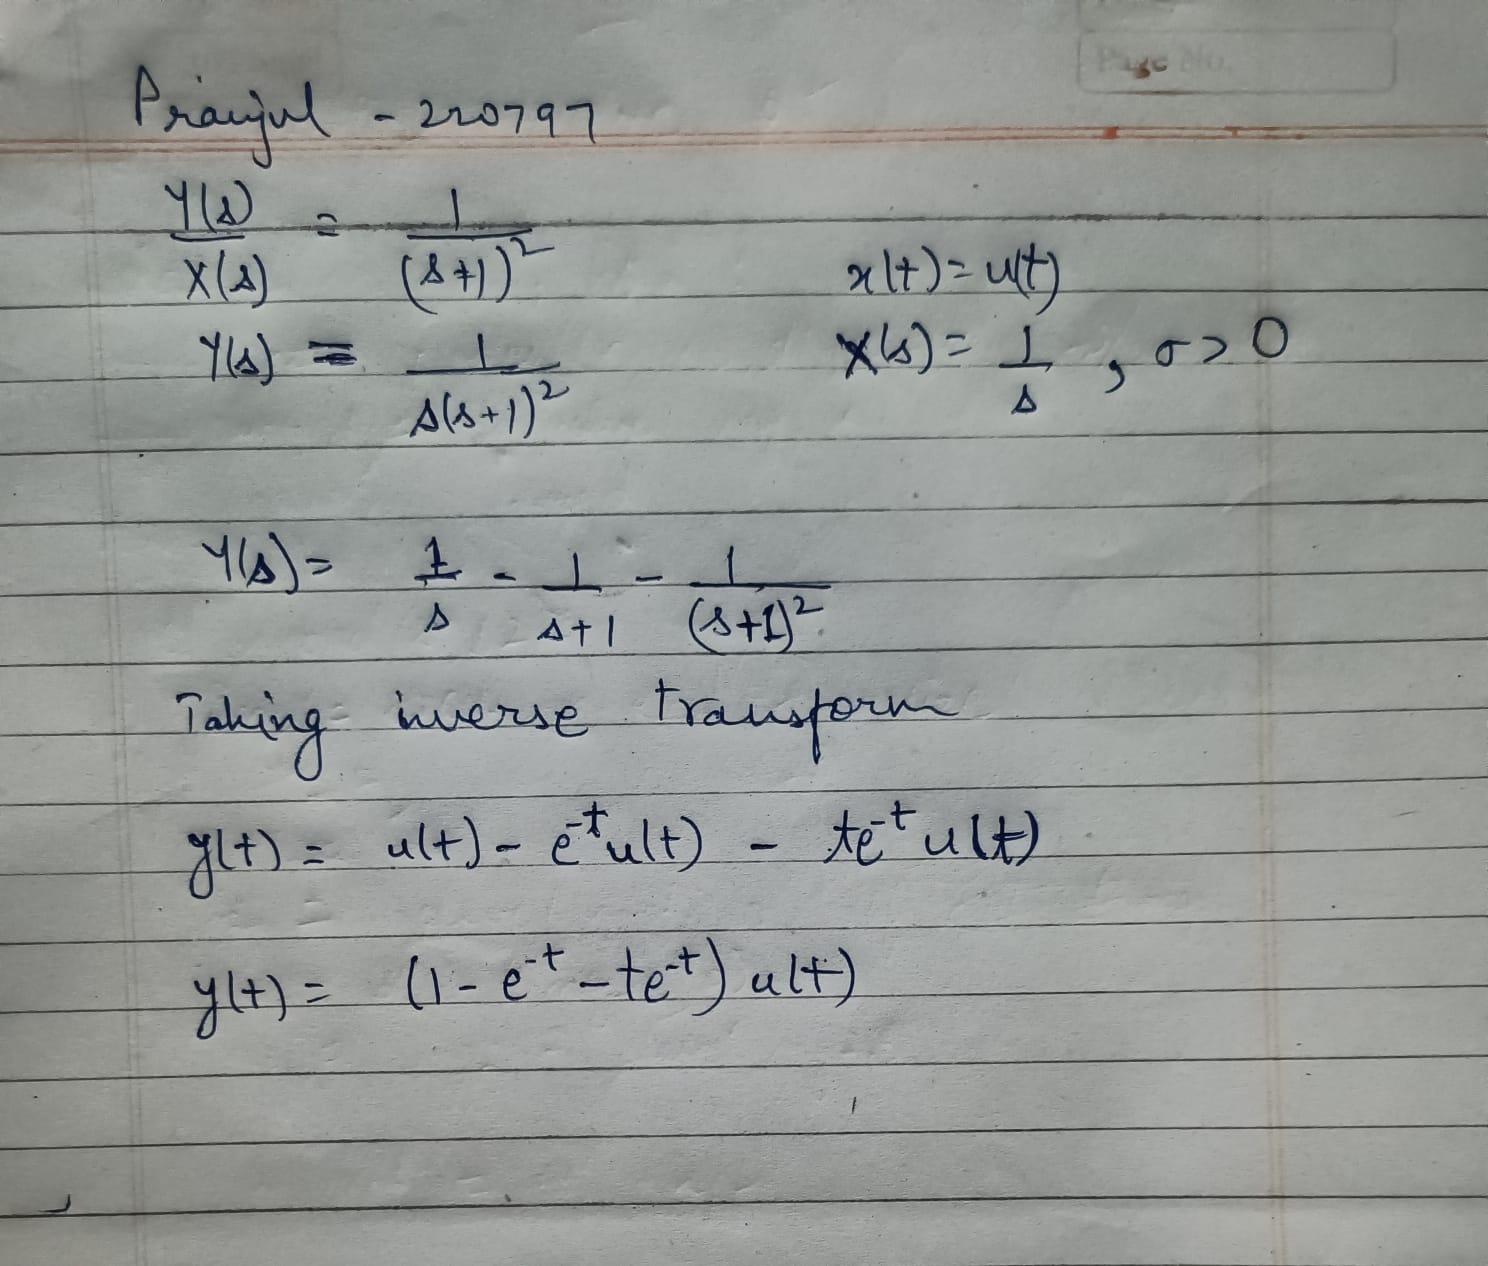 Page No.
Pranjul - 220797
Y(s)/X(s) = 1/(s+1)²
x(t) = u(t)
Y(s) = 1/s(s+1)²
X(s) = 1/s , σ>0
Y(s) = 1/s - 1/s+1 - 1/(s+1)²
Taking inverse transform
y(t) = u(t) - e^-t u(t) - te^-t u(t)
y(t) = (1 - e^-t - te^-t) u(t)